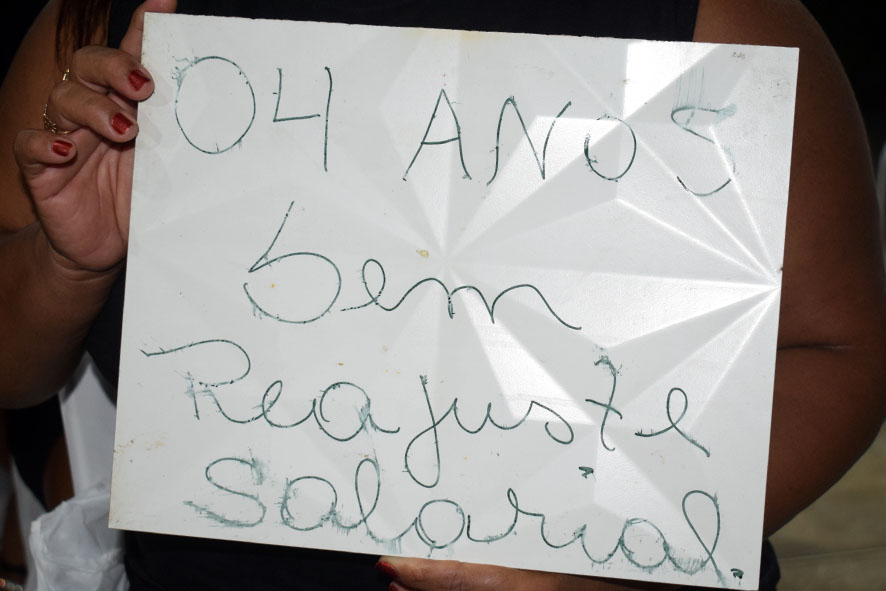 04 ANOS
Sem
Reajuste
Salarial.